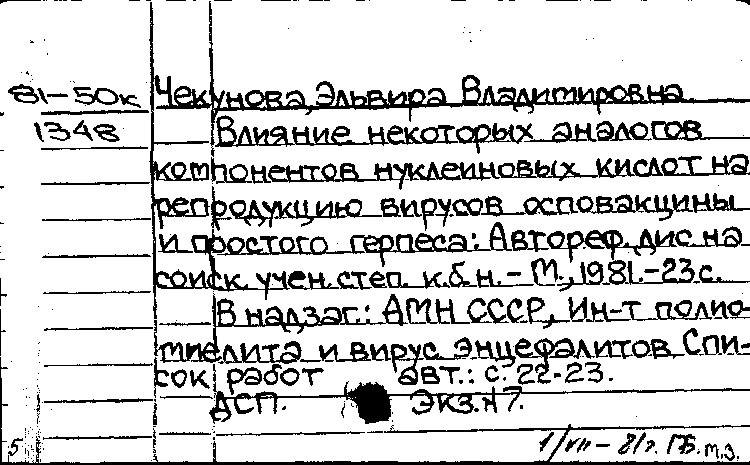 81-50к Чекунова, Эльвира Владимировна
1348 Влияние некоторых аналогов
компонентов нуклеиновых кислот на
репродукцию вирусов осповакцины
и простого герпеса: Автореф. дис. на
соиск. учен. степ. к.б.н. - М., 1981.-23с.
В надзаг.: АМН СССР, Ин-т полио-
миелита и вирус. энцефалитов. Спи-
сок работ авт.: с. 22-23.
ДСП. Экз. N 7.
5 1/VII - 81г. ГБ. м.з.